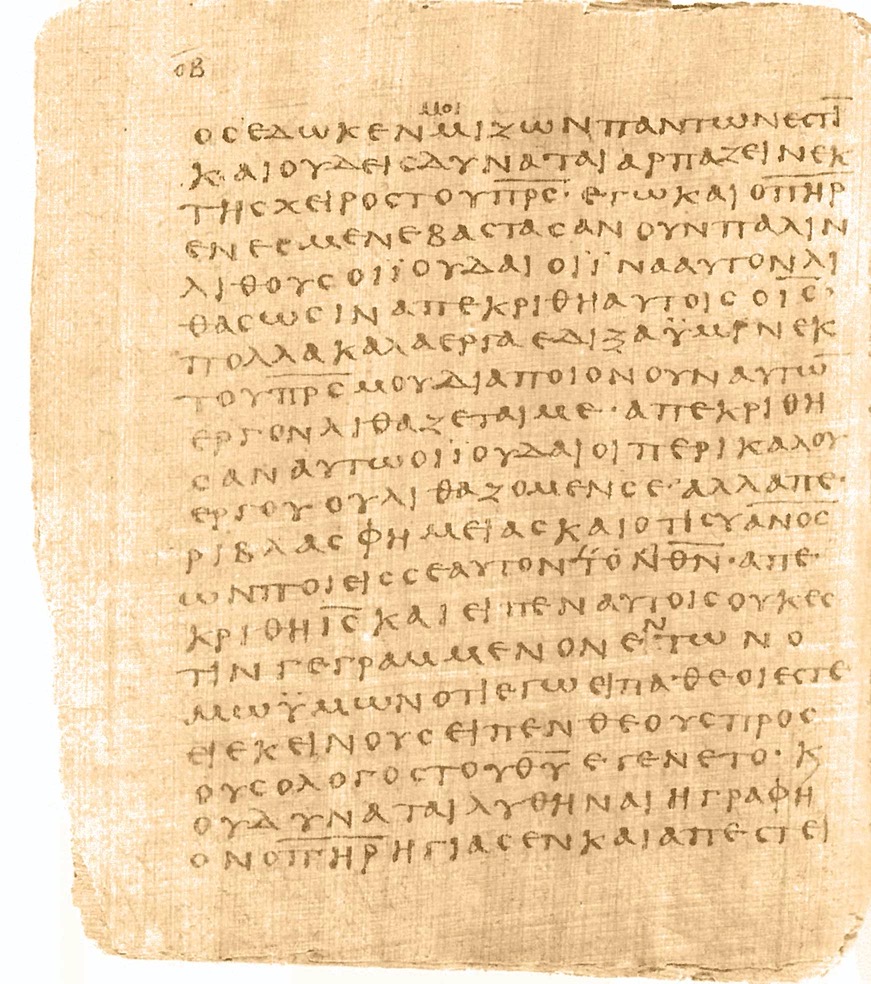 ο̅β̅
μοι
οϲεδωκενμιζωνπαντωνεϲτι̅
καιουδειϲδυναταιαρπαζεινεκ
τηϲχειροϲτουπ̅ρ̅ϲ̅·εγωκαιοπ̅η̅ρ̅
ενεϲμενεβαϲταϲανουνπαλιν
λιθουϲοιϊουδαιοιϊνααυτονλι
θαϲωϲιναπεκριθηαυτοιϲοι̅ϲ̅·
πολλακαλαεργαεδιξαϋμινεκ
τουπ̅ρ̅ϲ̅μουδιαποιονουναυτω̅
εργονλιθαζεταιμε·απεκριθη
ϲαναυτωοιϊουδαιοιπερικαλου
εργουουλιθαζομενϲε·αλλαπε·
ριβλαϲφημειαϲκαιοτιϲυα̅ν̅ο̅ϲ̅
ωνποιειϲϲεαυτοντονθ̅ν̅·απε·
κριθηι̅ϲ̅καιειπεναυτοιϲουκεϲ
τινγεγραμμενονεντωνο
μωϋμωνοτιεγωειπα·θεοιεϲτε
ειεκεινουϲειπενθεουϲπροϲ
ουϲολογοϲτουθ̅υ̅εγενετο·κ
ουδυναταιλυθηναιηγραφη
ονοπ̅η̅ρ̅ηγιαϲενκαιαπεϲτει